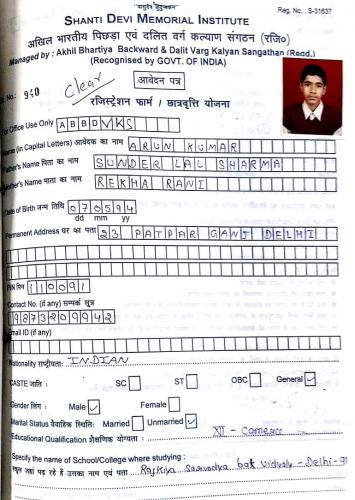 "वासुदेव कुटुम्बकम्"
Reg. No. : S-31637
SHANTI DEVI MEMORIAL INSTITUTE
अखिल भारतीय पिछड़ा एवं दलित वर्ग कल्याण संगठन (रजि०)
Managed by : Akhil Bhartiya Backward & Dalit Varg Kalyan Sangathan (Regd.)
(Recognised by GOVT. OF INDIA)
No.: 940 Clear आवेदन पत्र
रजिस्ट्रेशन फार्म / छात्रवृत्ति योजना
For Office Use Only ABBDVKS
Name (in Capital Letters) आवेदक का नाम ARUN KUMAR
Father's Name पिता का नाम SUNDER LAL SHARMA
Mother's Name माता का नाम REKHA RANI
Date of Birth जन्म तिथि 070594
dd mm yy
Permanent Address घर का पता 23 PATPAR GANJ DELHI
PIN पिन 110091
Contact No. (if any) सम्पर्क सूत्र
9873209942
Email ID (if any)
Nationality राष्ट्रीयता: INDIAN
CASTE जाति : SC ST OBC General ✓
Gender लिंग : Male ✓ Female
Marital Status वैवाहिक स्थिति: Married Unmarried ✓
Educational Qualification शैक्षणिक योग्यता : XII - Comerce
Specify the name of School/College where studying :
स्कूल जहां पढ़ रहे हैं उसका नाम एवं पता Rajkiya Sarvodya bal Vidyaly - Delhi-91